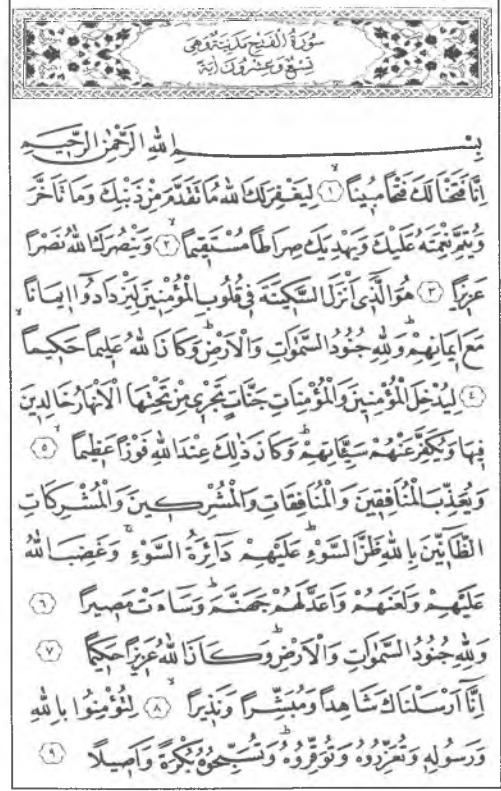 سُورَةُ الْفَتْحِ مَدَنِيَّةٌ وَهِيَ
تِسْعٌ وَعِشْرُونَ اٰيَةً
بِسْمِ اللّٰهِ الرَّحْمٰنِ الرَّحِيمِ
اِنَّا فَتَحْنَا لَكَ فَتْحًا مُبِينًاۙ ﴿١﴾ لِيَغْفِرَ لَكَ اللّٰهُ مَا تَقَدَّمَ مِنْ ذَنْبِكَ وَمَا تَاَخَّرَ
وَيُتِمَّ نِعْمَتَهُ عَلَيْكَ وَيَهْدِيَكَ صِرَاطًا مُسْتَقِيمًاۙ ﴿٢﴾ وَيَنْصُرَكَ اللّٰهُ نَصْرًا
عَزِيزًا ﴿٣﴾ هُوَ الَّذِٓي اَنْزَلَ السَّكِينَةَ فِي قُلُوبِ الْمُؤْمِنِينَ لِيَزْدَادُٓوا اِيمَانًا
مَعَ اِيمَانِهِمْۜ وَلِلّٰهِ جُنُودُ السَّمٰوَاتِ وَالْاَرْضِۜ وَكَانَ اللّٰهُ عَلِيمًا حَكِيمًاۙ
﴿٤﴾ لِيُدْخِلَ الْمُؤْمِنِينَ وَالْمُؤْمِنَاتِ جَنَّاتٍ تَجْرِي مِنْ تَحْتِهَا الْاَنْهَارُ خَالِدِينَ
فِيهَا وَيُكَفِّرَ عَنْهُمْ سَيِّـَٔاتِهِمْۜ وَكَانَ ذٰلِكَ عِنْدَ اللّٰهِ فَوْزًا عَظِيمًاۙ ﴿٥﴾
وَيُعَذِّبَ الْمُنَافِقِينَ وَالْمُنَافِقَاتِ وَالْمُشْرِكِينَ وَالْمُشْرِكَاتِ
الظَّٓانِّينَ بِاللّٰهِ ظَنَّ السَّوْءِۜ عَلَيْهِمْ دَٓائِرَةُ السَّوْءِۚ وَغَضِبَ اللّٰهُ
عَلَيْهِمْ وَلَعَنَهُمْ وَاَعَدَّ لَهُمْ جَهَنَّمَۜ وَسَٓاءَتْ مَصِيرًا ﴿٦﴾
وَلِلّٰهِ جُنُودُ السَّمٰوَاتِ وَالْاَرْضِۜ وَكَانَ اللّٰهُ عَزِيزًا حَكِيمًا ﴿٧﴾
اِنَّٓا اَرْسَلْنَاكَ شَاهِدًا وَمُبَشِّرًا وَنَذِيرًاۙ ﴿٨﴾ لِتُؤْمِنُوا بِاللّٰهِ
وَرَسُولِهِ وَتُعَزِّرُوهُ وَتُوَقِّرُوهُۜ وَتُسَبِّحُوهُ بُكْرَةً وَاَصِيلًا ﴿٩﴾